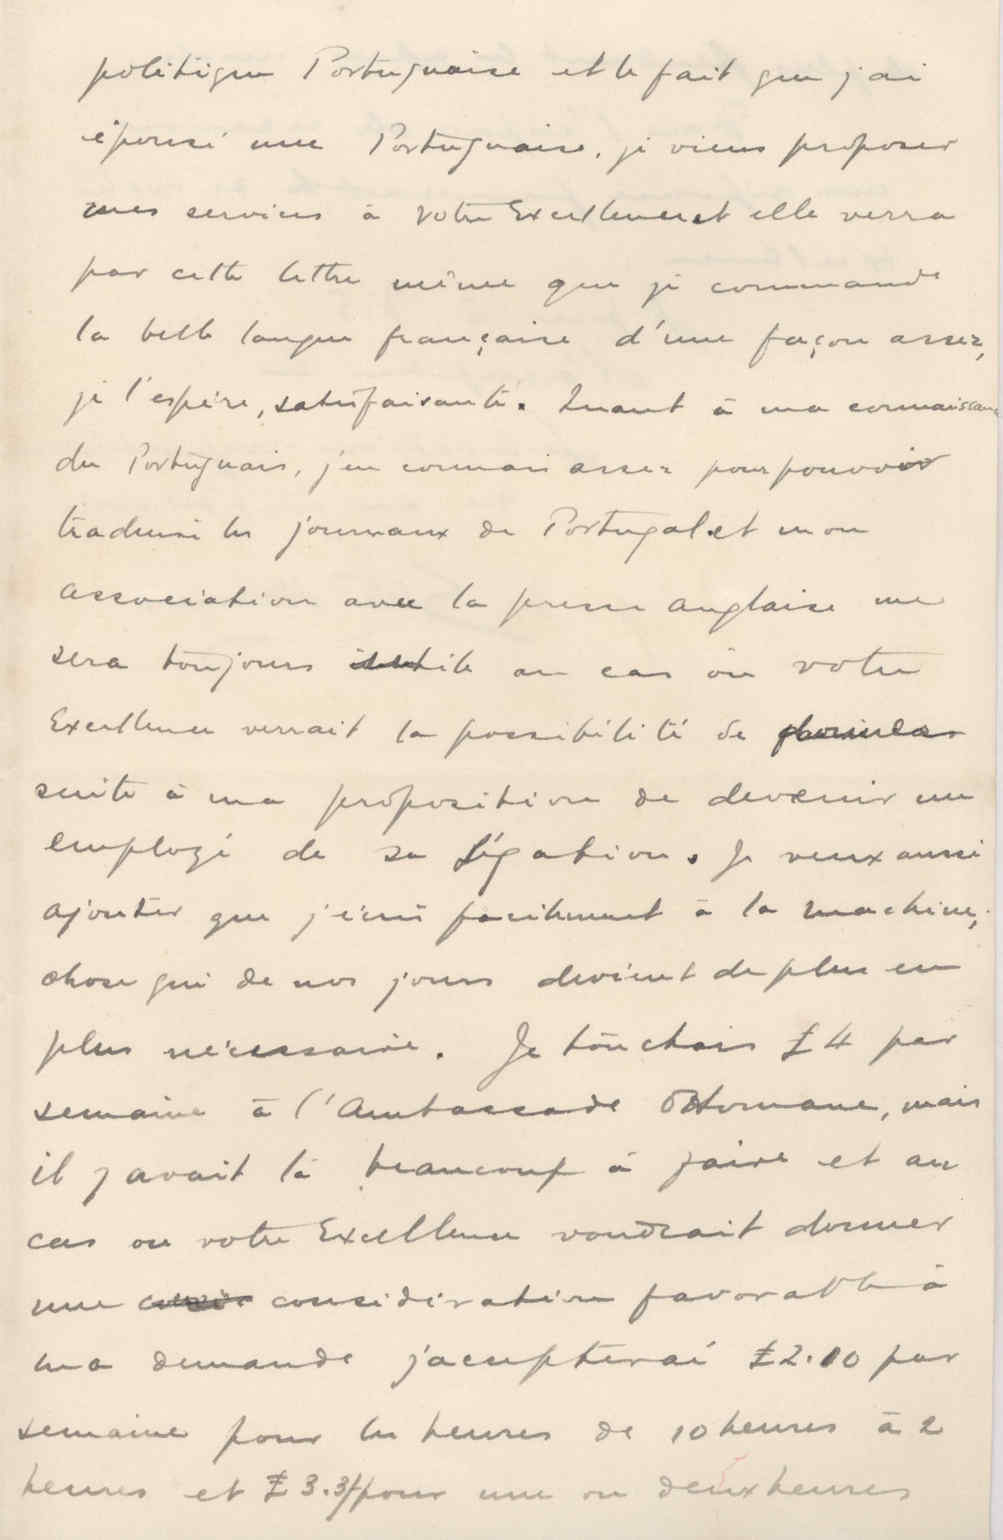 politique Portugaise et le fait que j'ai
épousé une Portugaise, je viens proposer
mes services à votre Excellence et elle verra
par cette lettre même que je commande
la belle langue française d'une façon assez,
je l'espère, satisfaisante. Quant à ma connaissance
du Portugais, j'en connais assez pour pouvoir
traduire les journaux de Portugal et mon
association avec la presse anglaise me
sera toujours utile au cas où votre
Excellence verrait la possibilité de
suite à ma proposition de devenir un
employé de sa Légation. Je veux aussi
ajouter que j'écris facilement à la machine,
chose qui de nos jours devient de plus en
plus nécessaire. Je touchais £4 par
semaine à l'Ambassade Ottomane, mais
il y avait là beaucoup à faire et au
cas ou votre Excellence voudrait donner
une considération favorable à
ma demande j'accepterai £2.10 par
semaine pour les heures de 10 heures à 2
heures et £3.3/ pour une ou deux heures